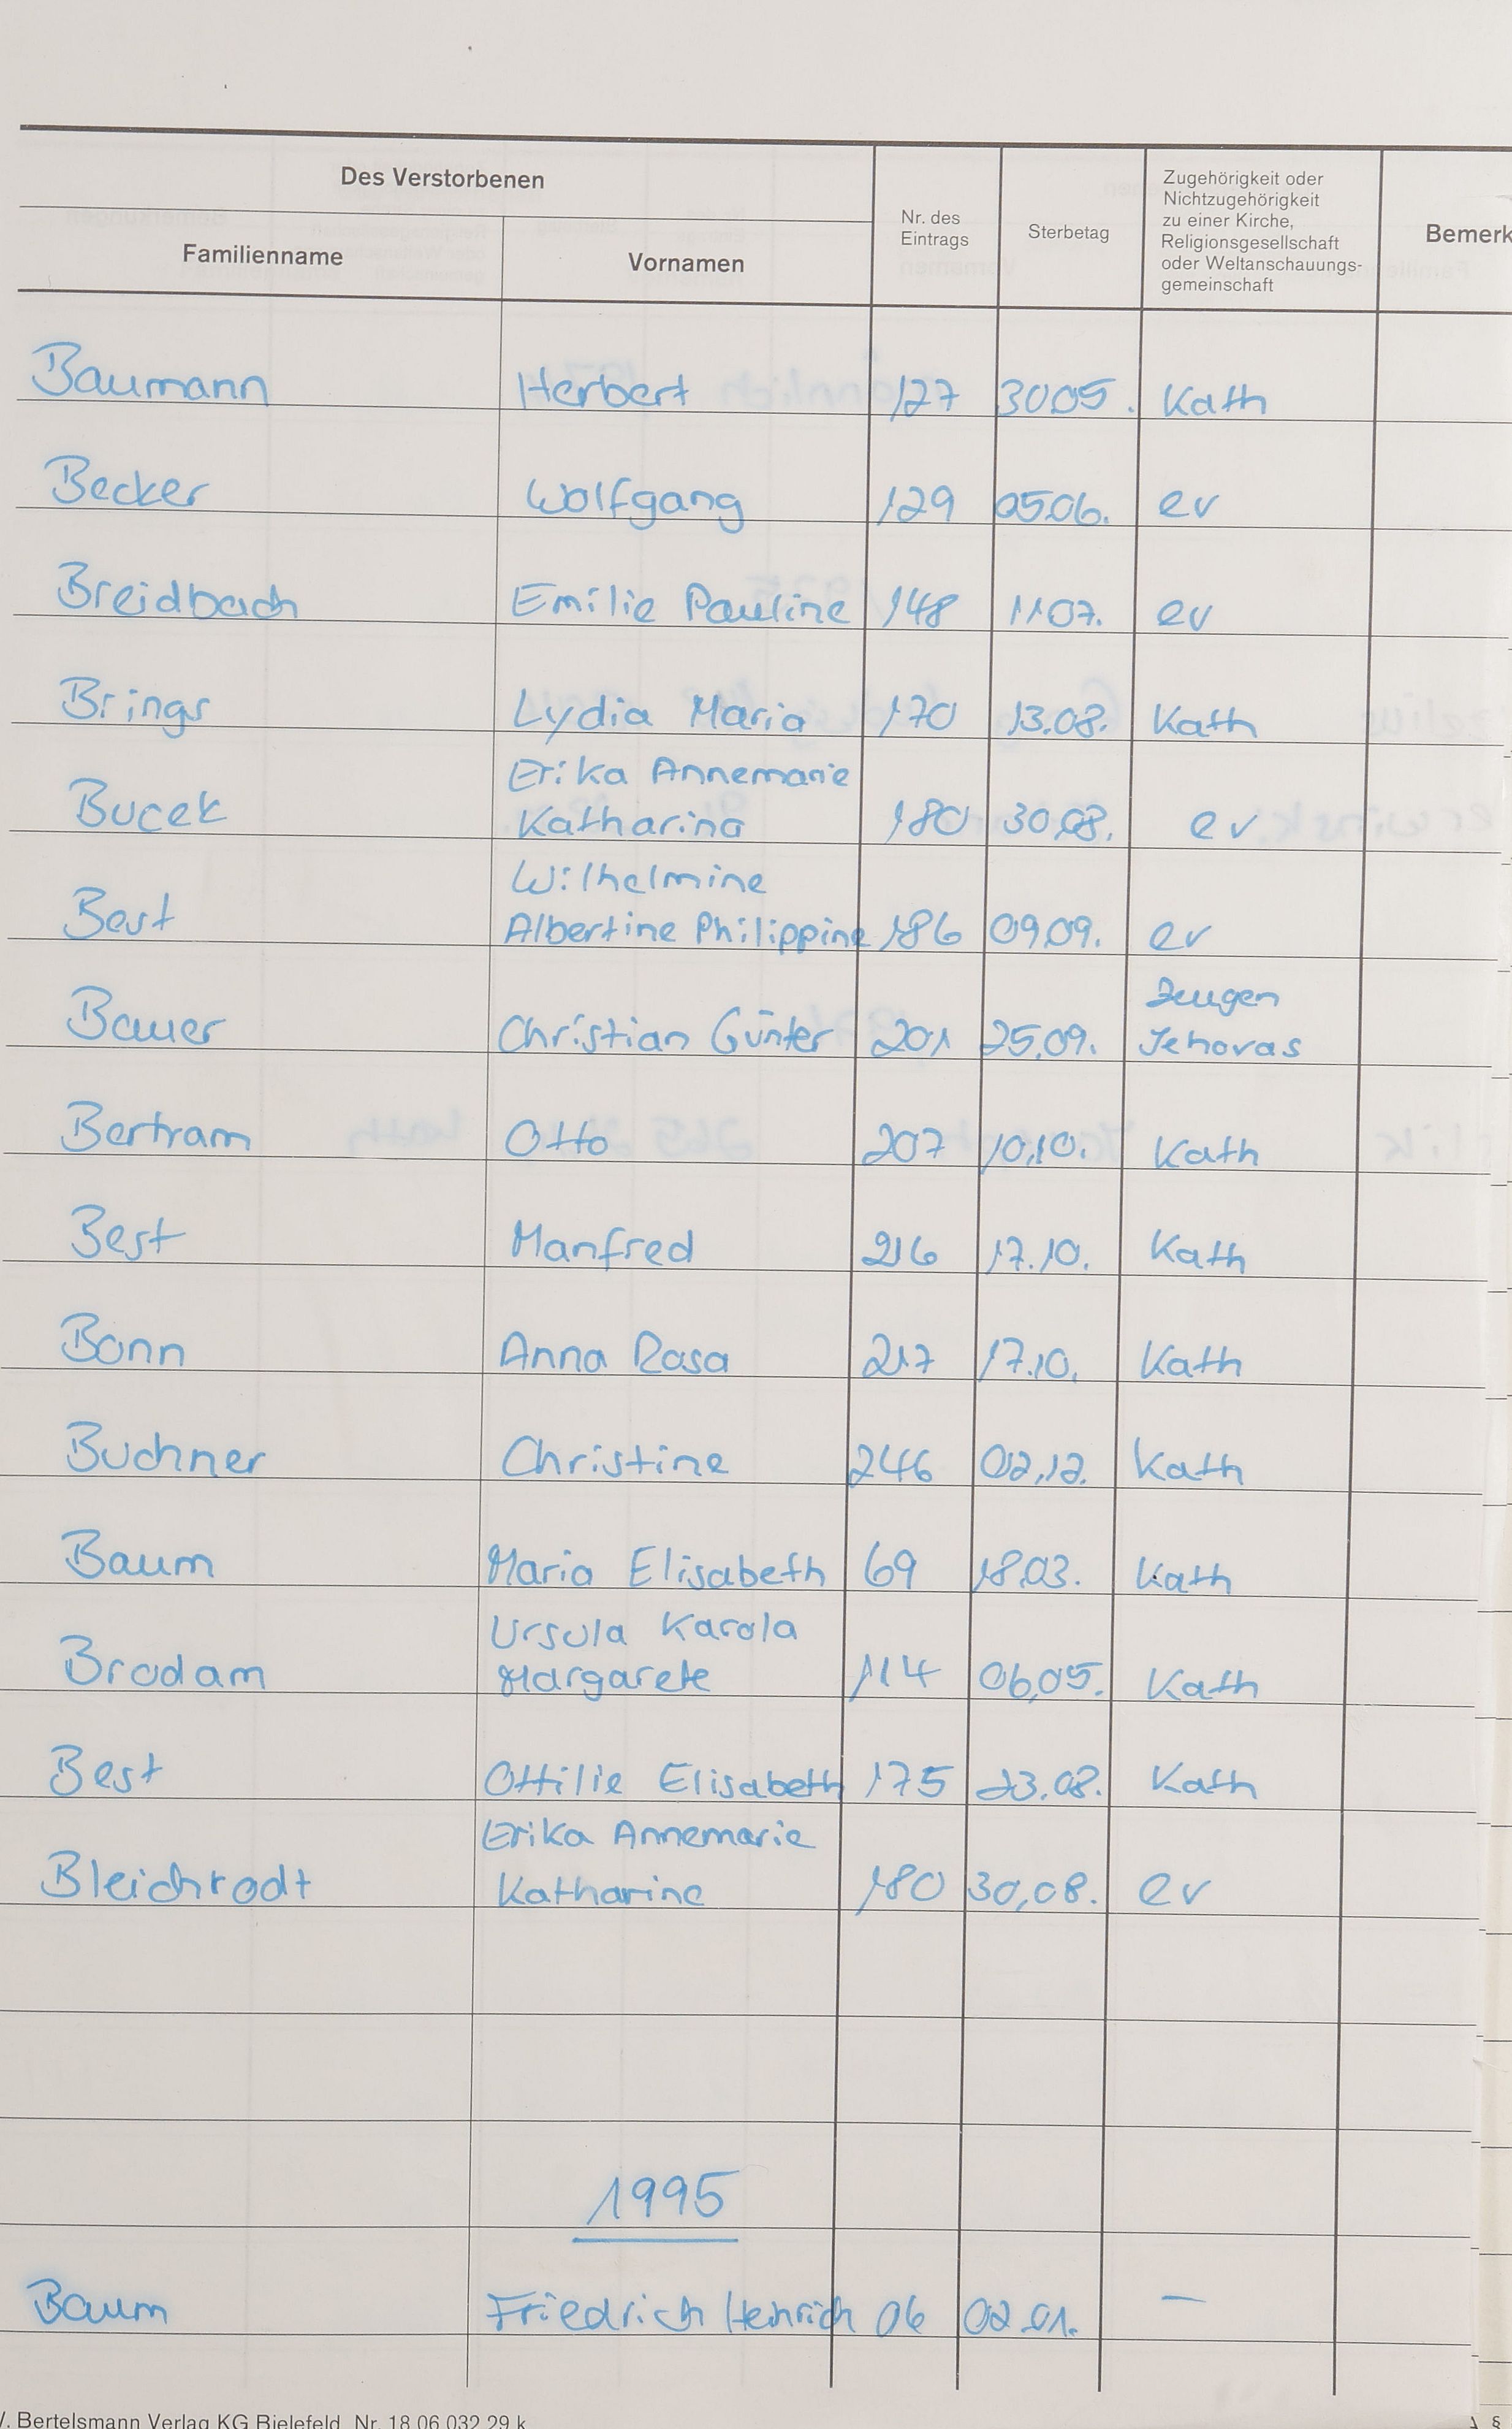 Des Verstorbenen
Familienname Vornamen
Nr. des
Eintrags
Sterbetag
Zugehörigkeit oder
Nichtzugehörigkeit
zu einer Kirche,
Religionsgesellschaft
oder Weltanschauungs-
gemeinschaft
Bemerk
Baumann Herbert 127 30.05. Kath
Becker Wolfgang 129 05.06. ev
Breidbach Emilie Pauline 148 11.07. ev
Brings Lydia Maria 170 13.08. Kath
Erika Annemarie
Bucek Katharina 180 30.08. ev
Wilhelmine
Best Albertine Philippine 186 09.09. ev
Zeugen
Bauer Christian Günter 201 25.09. Jehovas
Bertram Otto 207 10.10. Kath
Best Manfred 216 17.10. Kath
Bonn Anna Rosa 217 17.10. Kath
Buchner Christine 246 02.12. Kath
Baum Maria Elisabeth 69 18.03. Kath
Ursula Karola
Brodam Margarete 114 06.05. Kath
Best Ottilie Elisabeth 175 23.08. Kath
Erika Annemarie
Bleichrodt Katharine 180 30.08. ev
1995
Baum Friedrich Heinrich 06 02.01. —
. Bertelsmann Verlag KG Bielefeld Nr. 18 06 032 29 k